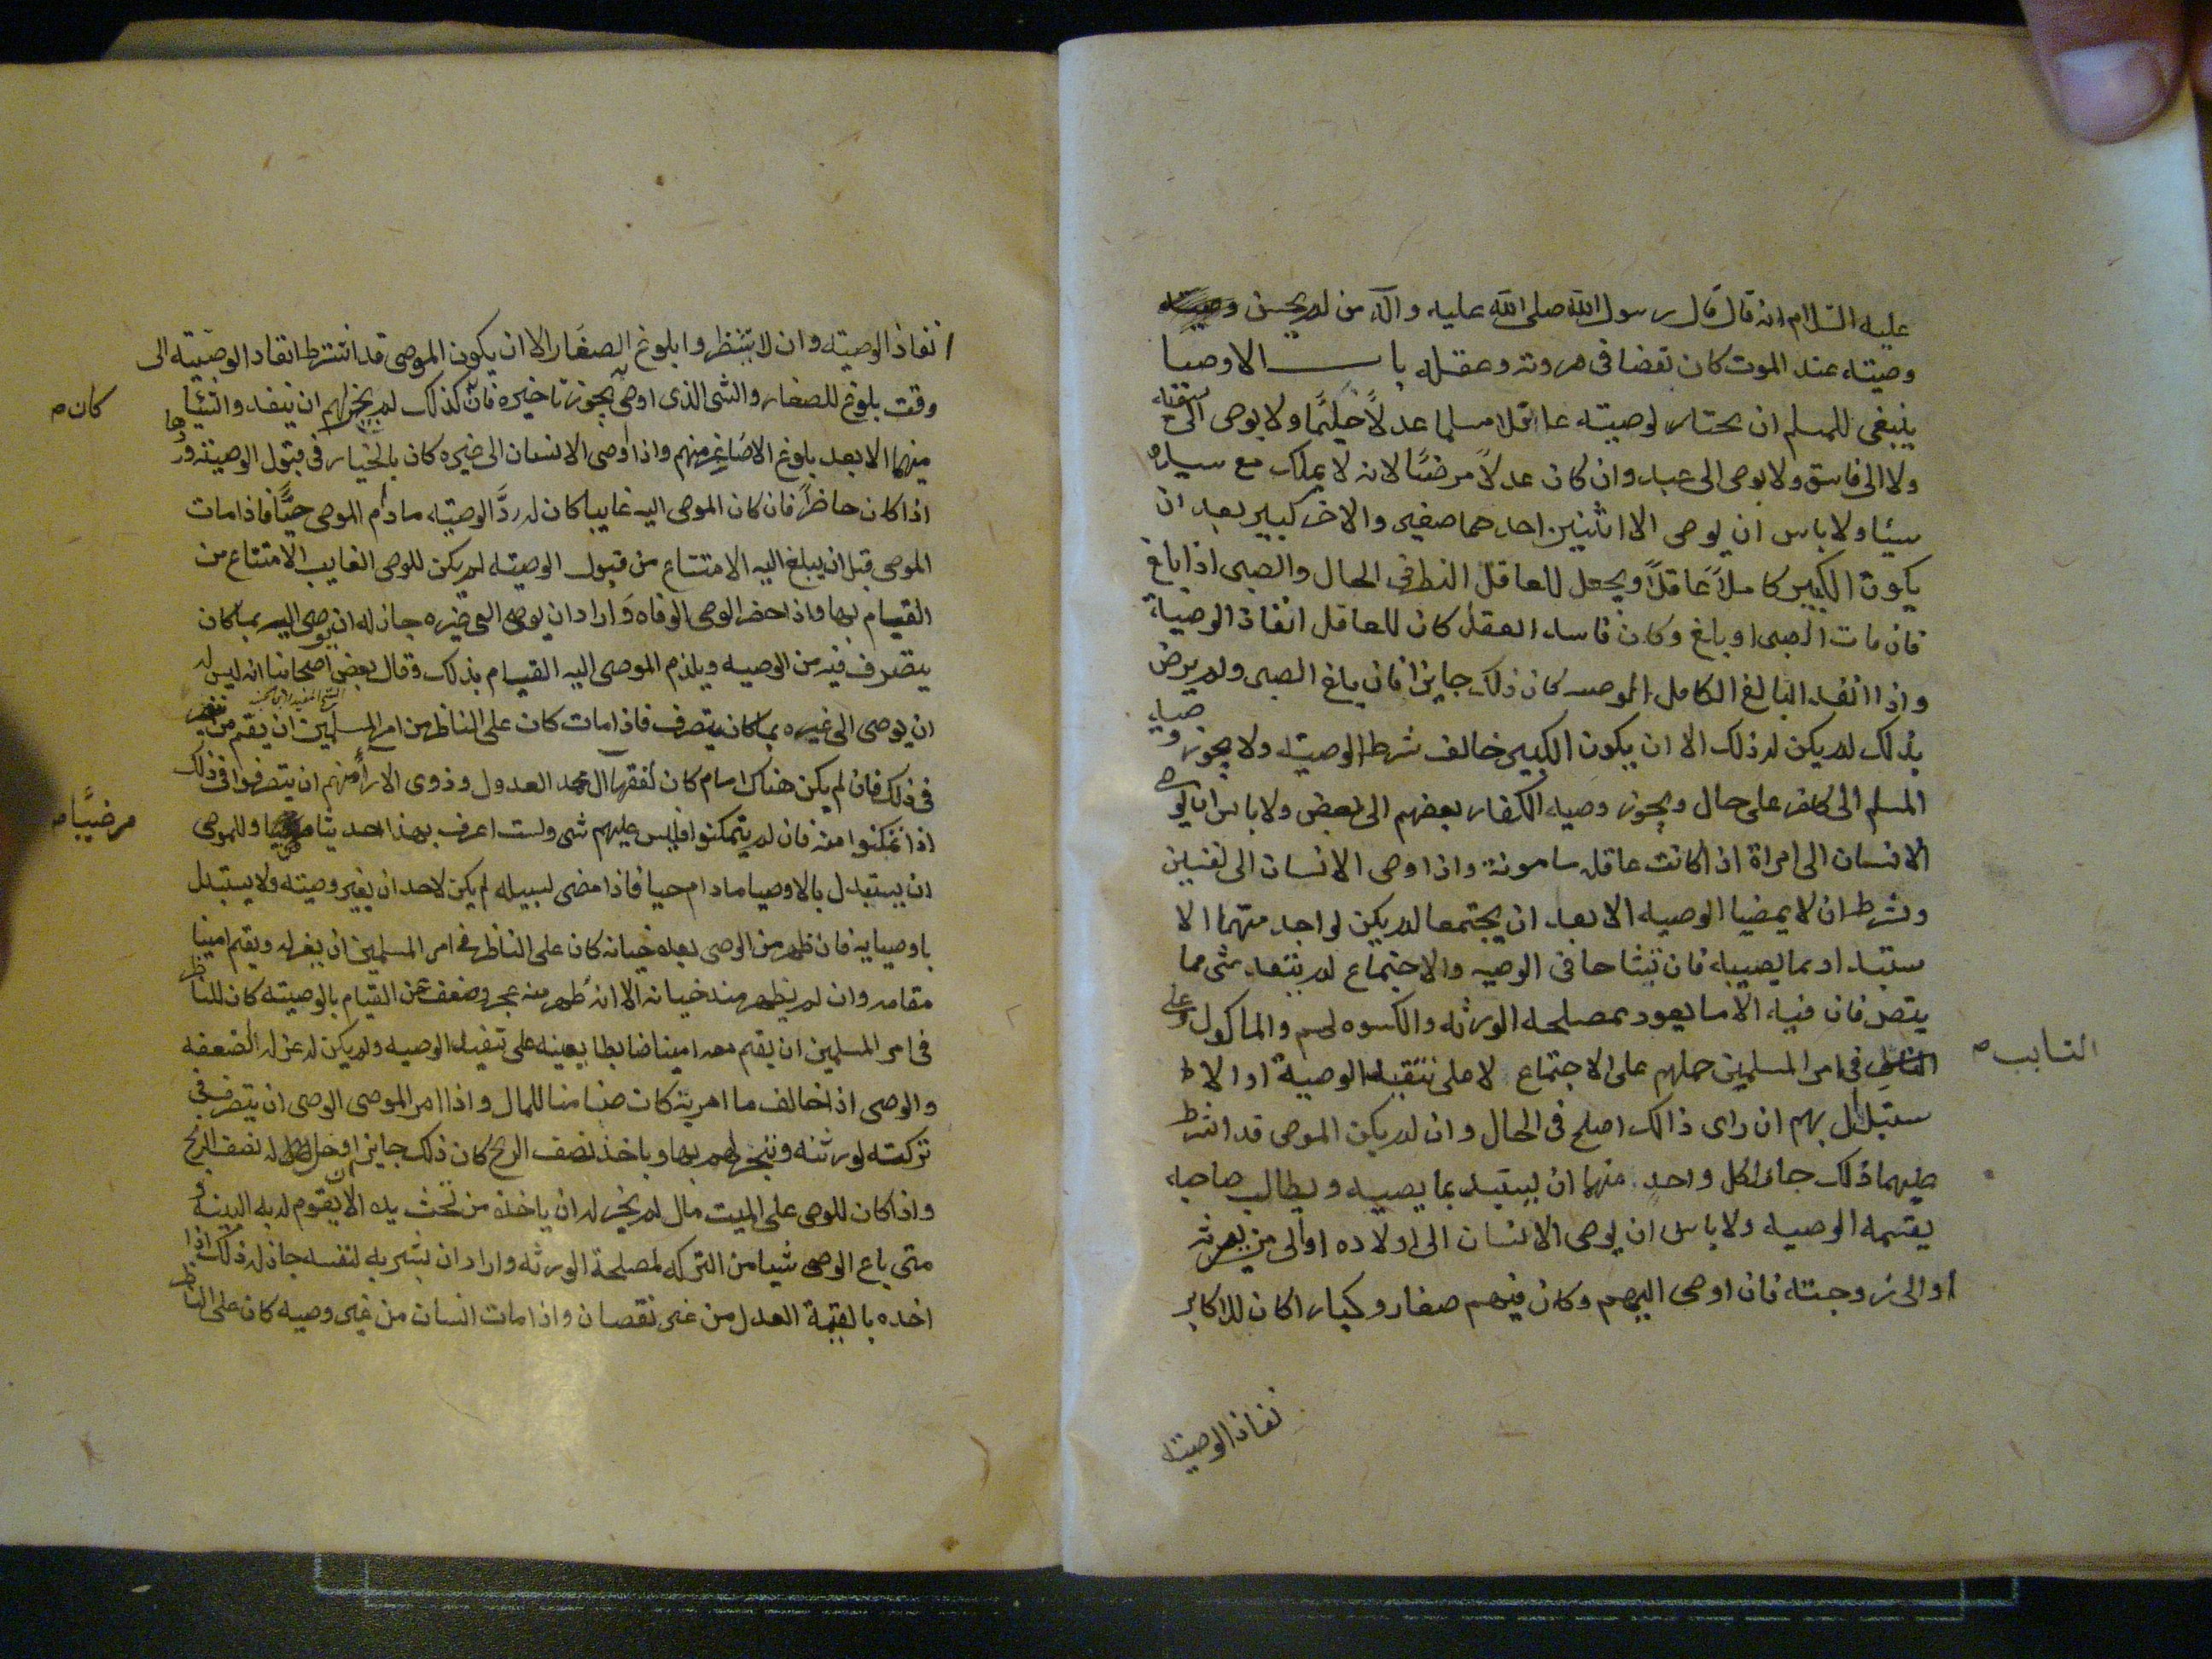 عليه السّلام انه قال قال رسول الله صلى الله عليه وآله من لم يحسن
وصيته عند الموت كان نقصا في مروته وعقله باب الاوصيا
ينبغي للمسلم ان يختار لوصيته عاقلا مسلما عدلاً حليمًا ولا يوصى الى سفيه
ولا الى فاسق ولا يوصى الى عبد وان كان عدلاً مرضيًا لانه لا يملك مع سيده
شيئا ولا باس ان يوصى الا اثنين احدهما صغير والاخر كبير بعد ان
يكون الكبير كاملاً عاقلاً ويجعل للعاقل النظر في الحال والصبى اذا بلغ
فان مات الصبى او بلغ وكان فاسد العقل كان للعاقل انفاذ الوصية
واذا انفد البالغ الكامل الوصيه كان ذلك جايزا فان بلغ الصبى ولم يرض
بذلك لم يكن له ذلك الا ان يكون الكبير خالف شرط الوصيته ولا يجوز وصية
المسلم الى كافر على حال ويجوز وصيه الكفار بعضهم الى بعض ولا باس ان يوصى
الانسان الى امراة اذا كانت عاقله مامونة واذا وصى الانسان الى نفسين
وشرط ان لا يمضيا الوصيه الا بعد ان يجتمعا لم يكن لواحد منهما الا
ستبداد بما يصيبه فان تشاحا في الوصيه والاجتماع لم ينفد شي مما
يتصرفان فيه الا ما يعود بمصلحه الورثه والكسوه لهم والماكول وعلى
الناظر في امر المسلمين حملهم على الاجتماع لا على تنفيذ الوصية او الا
النايب ص
ستبدال بهم ان راى ذالك اصلح في الحال وان لم يكن الموصى قد اشترط
عليهما ذلك جاز لكل واحد منهما ان يستبد بما يصيبه ويطالب صاحبه
بقسمه الوصيه ولا باس ان يوصى الانسان الى اولاده او الى من يورثه
او الى زوجته فان اوصى اليهم وكان فيهم صغار وكبار كان للاكابر
نفاذ الوصيته
انفاذ الوصيته وان لا ينتظروا بلوغ الصغار الا ان يكون الموصى قد اشترط انفاد الوصيته الى
وقت بلوغ للصغار والشى الذى اوصى به يجوز تاخيره فان كذلك لم يجز لهم ان ينفد واشيئا
كان ص
منهما الا بعد بلوغ الاصاغر منهم واذا أوصى الانسان الى غيره كان بالخيار في قبول الوصيته وردها
اذا كان حاضراً فان كان الموصى اليه غايبا كان له ردَّ الوصيته مادام الموصى حيًّا فاذا مات
الموصى قبل ان يبلغ اليه الامتناع من قبول الوصيته لم يكن للوصى الغايب الامتناع من
القيام بها واذا حضر الوصى الوفاه وَاراد ان يوصى الى غيره جاز له ان يوصى اليه بما كان
يتصرف فيه من الوصيه ويلزم الموصى اليه القيام بذلك وقال بعض اصحابنا انه ليس له
ان يوصى الى غيره بما كان يتصرف فاذا مات كان على الناظر من امر المسلمين ان يقم من ينظر
في ذلك فان لم يكن هناك امام كان لفقها ال محمد العدول وذوى الارا منهم ان يتصرفوا في ذلك
اذا تمكنوا منه فان لم يتمكنوا فليس عليهم شى ولست اعرف بهذا حديثا وللموصى
مرضيًا ص
ان يستبدل بالاوصيا مادام حيا فاذا مضى لسبيله لم يكن لاحد ان يغير وصيته ولا يستبدل
باوصيايه فان ظهر من الوصى بعده خيانه كان على الناظر في امر المسلمين ان يعزله ويقم امينا
مقامه وان لم يظهر منه خيانه الا انه ظهر منه عجز وضعف عن القيام بالوصيته كان للناظر
في امر المسلمين ان يقيم معه امينا ضابطا يعينه على تنفيذ الوصيه ولم يكن له عزله لضعفه
والوصى اذا خالف ما امر به كان ضامنا للمال واذا امر الموصى الوصى ان يتصرف في
تركته لورثته ويتجر لهم بها وياخذ نصف الربح كان ذلك جايزا وحل له نصف الربح
واذا كان للوصى على الميت مال لم يجز له ان ياخذه من تحت يده الا ان يقوم له به البينه و
متى باع الوصى شيا من التركه لمصلحة الورثه واراد ان يشتريه لنفسه جاز له ذلك اذا
اخذه بالقيمة العدل من غير نقصان واذا مات انسان من غير وصيه كان على الناظر